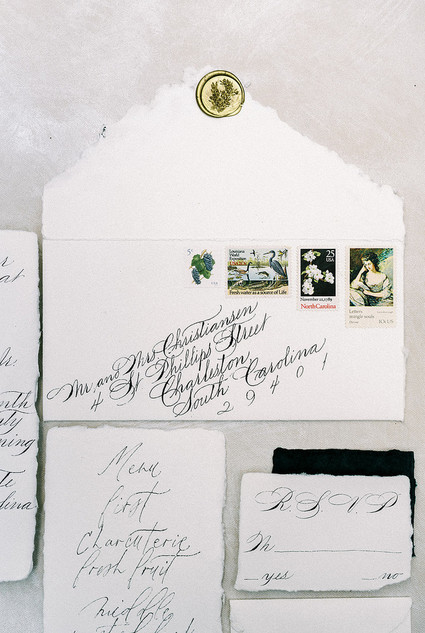 5¢
USA
Louisiana
World
Exposition
USA 20c
Fresh water as a source of Life
25
USA
November 21, 1789
North Carolina
Letters
mingle souls
10c US
Mr. and Mrs Christiansen
4 St Phillips Street
Charleston
South Carolina
29401
r
at
r.
nth
ty
ning
te
olina
Menu
first
Charcuterie
fresh fruit
middle
R.S.V.P
M
yes no